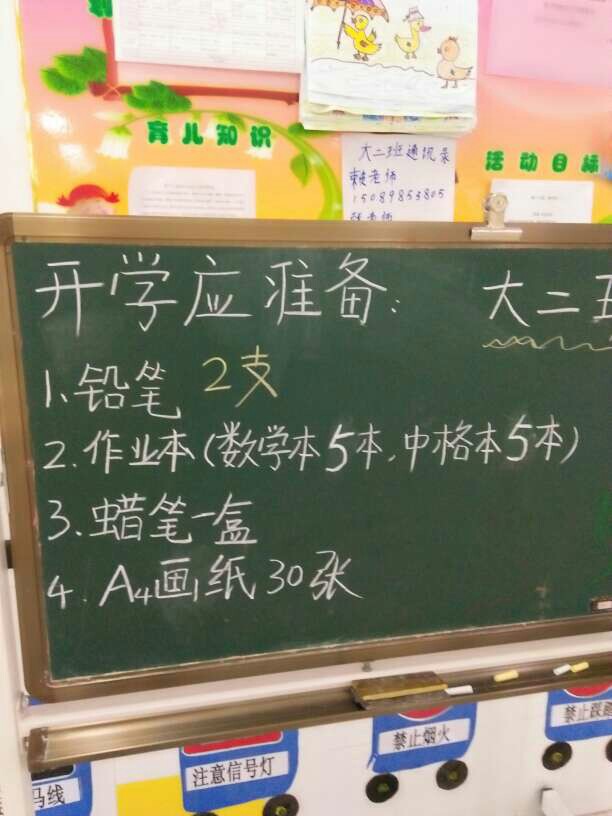 育儿知识
大二班通讯录
老师
15089853805
老师
活动目标
开学应准备: 大二
1.铅笔 2支
2.作业本(数学本5本,中格本5本)
3.蜡笔一盒
4.A4画纸30张
马线
注意信号灯
禁止烟火
禁止